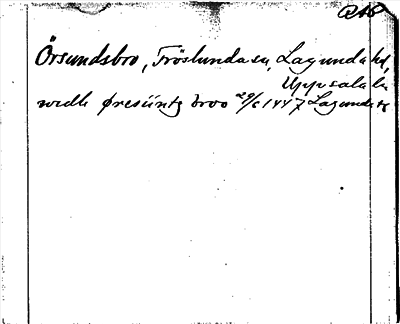 Örsundsbro, Fröslunda sn, Lagunda hd,
Uppsala län
wedh øresüntz broo 29/6 1447 Lagunda